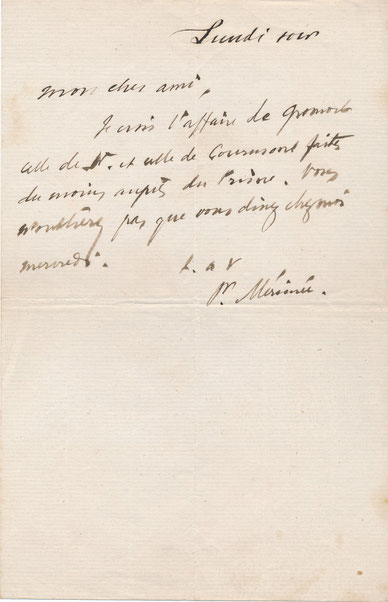 Lundi soir
mon cher ami,
Je crois l'affaire de
celle de et celle de faites
du moins auprès du Prince. Vous
n'oublierez pas que vous dinez chez moi
mercredi.
t. a v
Pr. Mérimée.